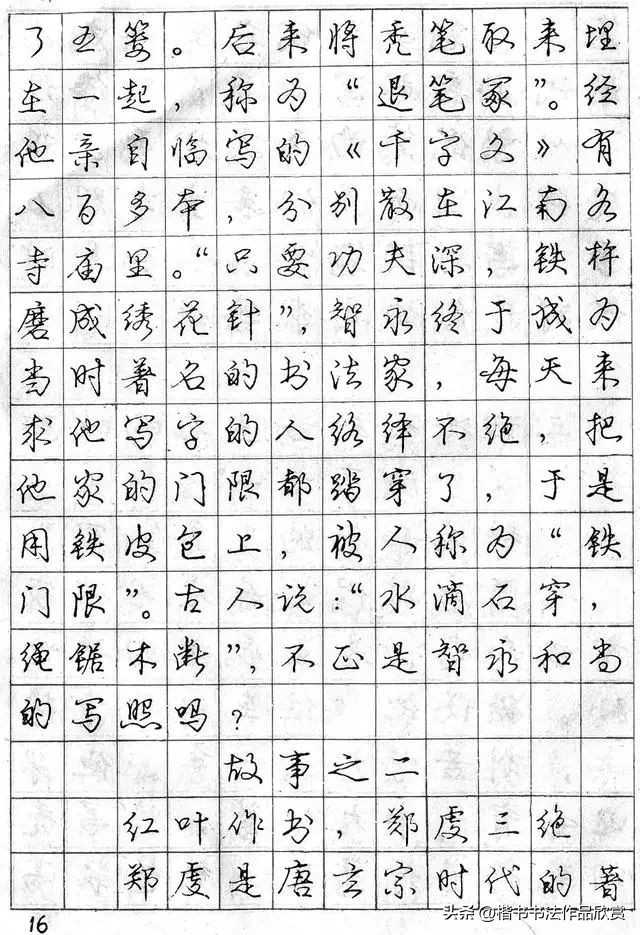 了五篓。后来将秃笔取来埋
在一起，称为“退笔冢”。经
他亲自临写的《千字文》有
八百多本，分别散在江南各
寺庙里。“只要功夫深，铁杵
磨成绣花针”，智永终于成为
当时著名的书法家，每天来
求他写字的人络绎不绝，把
他家的门限都踏穿了，于是
用铁皮包上，被人称为“铁
门限”。古人说：“水滴石穿，
绳锯木断”，不正是智永和尚
的写照吗？
故事之二
红叶作书，郑虔三绝
郑虔是唐玄宗时代的著
16
头条@楷书书法作品欣赏